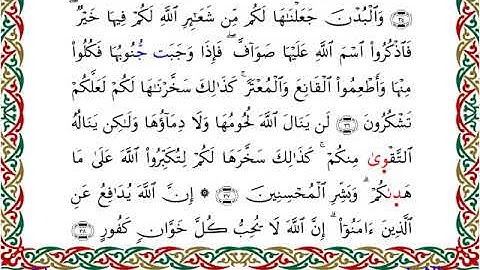 ٣٥ وَٱلْبُدْنَ جَعَلْنَٰهَا لَكُم مِّن شَعَٰٓئِرِ ٱللَّهِ لَكُمْ فِيهَا خَيْرٌ ۖ
فَٱذْكُرُوا۟ ٱسْمَ ٱللَّهِ عَلَيْهَا صَوَآفَّ ۖ فَإِذَا وَجَبَت جُّنُوبُهَا فَكُلُوا۟
مِنْهَا وَأَطْعِمُوا۟ ٱلْقَانِعَ وَٱلْمُعْتَرَّ ۚ كَذَٰلِكَ سَخَّرْنَٰهَا لَكُمْ لَعَلَّكُمْ
تَشْكُرُونَ ٣٦ لَن يَنَالَ ٱللَّهَ لُحُومُهَا وَلَا دِمَآؤُهَا وَلَٰكِن يَنَالُهُ
ٱلتَّقْوَىٰ مِنكُمْ ۚ كَذَٰلِكَ سَخَّرَهَا لَكُمْ لِتُكَبِّرُوا۟ ٱللَّهَ عَلَىٰ مَا
هَدَىٰكُمْ ۗ وَبَشِّرِ ٱلْمُحْسِنِينَ ٣٧ ۞ إِنَّ ٱللَّهَ يُدَٰفِعُ عَنِ
ٱلَّذِينَ ءَامَنُوٓا۟ ۗ إِنَّ ٱللَّهَ لَا يُحِبُّ كُلَّ خَوَّانٍ كَفُورٍ ٣٨